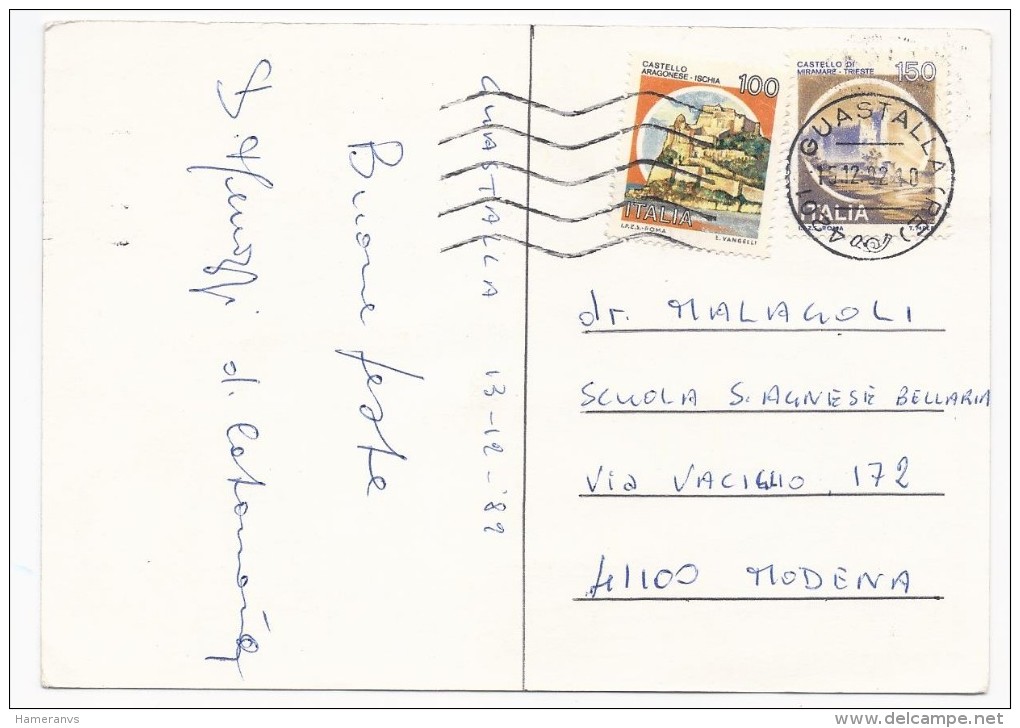 GUASTALLA 13-12-'82
Buone feste
CASTELLO
ARAGONESE - ISCHIA
100
ITALIA
I.P.Z.S.-ROMA E. VANGELLI
CASTELLO DI
MIRAMARE - TRIESTE
150
ITALIA
I.P.Z.S.-ROMA
GUASTALLA (RE)
15.12.82
dr. MALAGOLI
SCUOLA S. AGNESE BELLARIA
Via VACIGLIO, 172
41100 MODENA
Hameranvs
www.delcampe.net